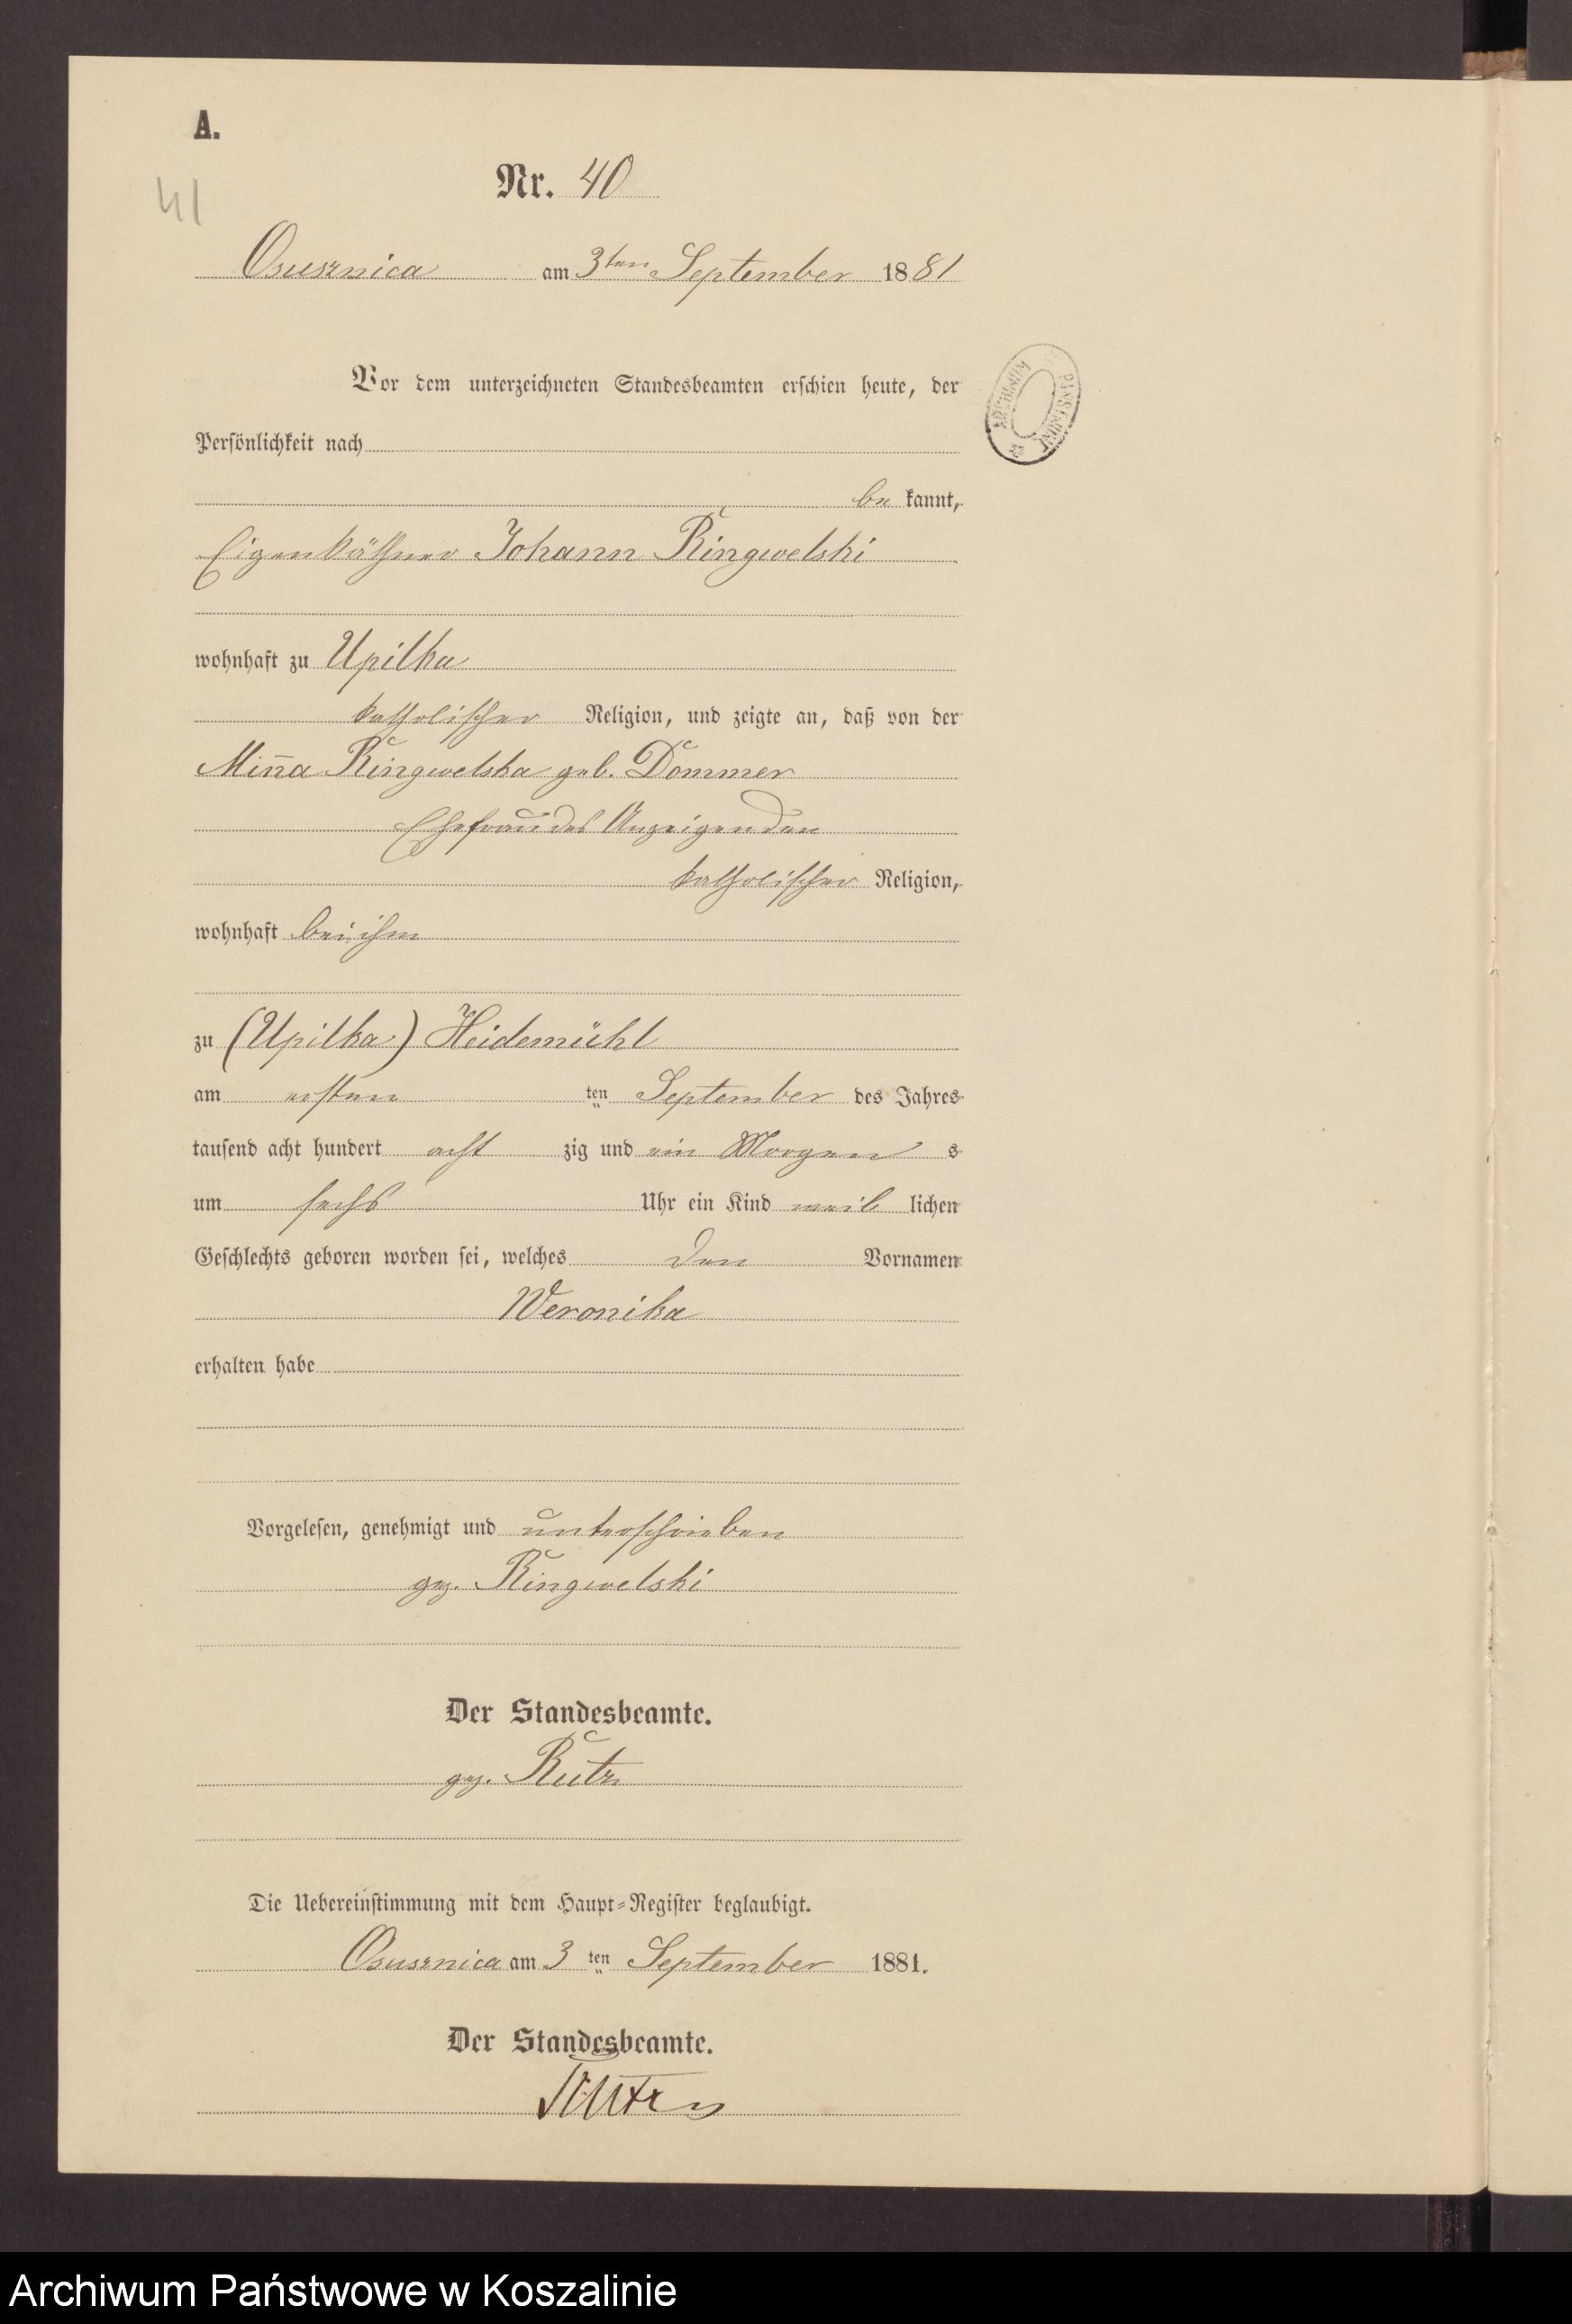 A.
Nr. 40
41
Osusznica am 3ten September 1881
Vor dem unterzeichneten Standesbeamten erschien heute, der
Persönlichkeit nach
be kannt,
Eigenkäthner Johann Ringwelski
wohnhaft zu Upilka
katholischer Religion, und zeigte an, daß von der
Min̄a Ringwelska geb. Dommer
Ehefrau des Anzeigenden
katholischer Religion,
wohnhaft bei ihm
zu (Upilka) Heidemühl
am ersten ten September des Jahres
tausend acht hundert acht zig und ein Morgen s
um sechs Uhr ein Kind weib lichen
Geschlechts geboren worden sei, welches den Vornamen
Weronika
erhalten habe
Vorgelesen, genehmigt und unterschrieben
gez. Ringwelski
Der Standesbeamte.
gez. Rutz
Die Uebereinstimmung mit dem Haupt-Register beglaubigt.
Osusznica am 3 ten September 1881.
Der Standesbeamte.
Rutz
Archiwum Państwowe w Koszalinie